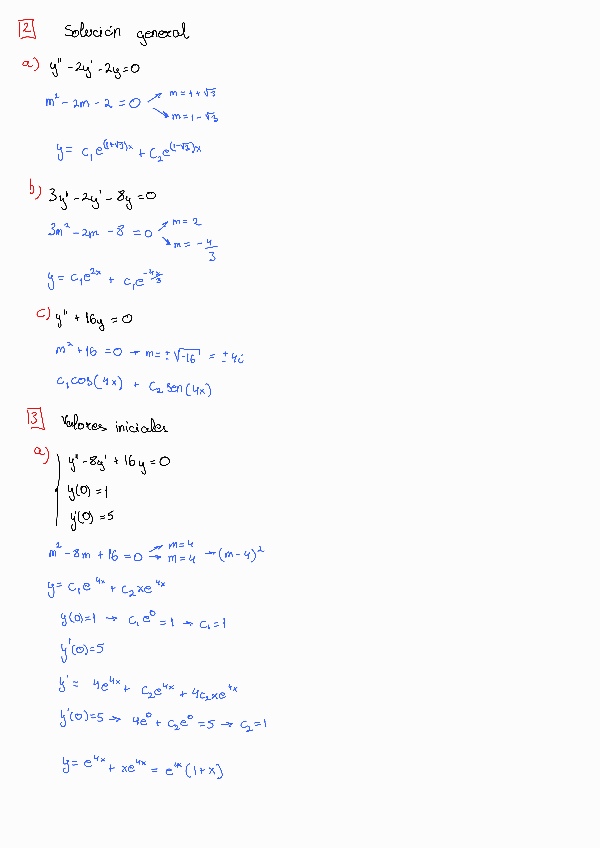 2 Solución general
a) y'' - 2y' - 2y = 0
m² - 2m - 2 = 0 → m = 1 + √3
→ m = 1 - √3
y = c₁e^(1+√3)x + c₂e^(1-√3)x
b) 3y'' - 2y' - 8y = 0
3m² - 2m - 8 = 0 → m = 2
→ m = -4/3
y = c₁e^2x + c₁e^-4x/3
c) y'' + 16y = 0
m² + 16 = 0 → m = ±√-16 = ±4i
c₁cos(4x) + c₂ sen(4x)
3 Valores iniciales
a) y'' - 8y' + 16y = 0
y(0) = 1
y'(0) = 5
m² - 8m + 16 = 0 → m = 4
→ m = 4 → (m - 4)²
y = c₁e^4x + c₂xe^4x
y(0) = 1 → c₁e⁰ = 1 → c₁ = 1
y'(0) = 5
y' = 4e^4x + c₂e^4x + 4c₂xe^4x
y'(0) = 5 → 4e⁰ + c₂e⁰ = 5 → c₂ = 1
y = e^4x + xe^4x = e^4x (1 + x)